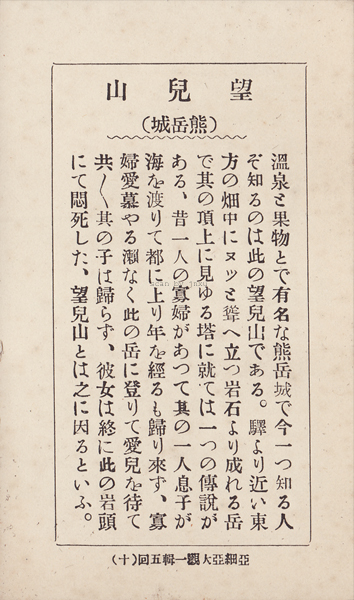 望兒山
(熊岳城)
温泉と果物とで有名な熊岳城で今一つ知る人
ぞ知るのは此の望兒山である。驛より近い東
方の畑中にヌッと聳へ立つ岩石より成れる岳
で其の頂上に見ゆる塔に就ては一つの傳說が
ある、昔一人の寡婦があつて其の一人息子が
海を渡りて都に上り年を經るも歸り來ず、寡
婦愛慕やる瀬なく此の岳に登りて愛兒を待て
共〱其の子は歸らず、彼女は終に此の岩頭
にて悶死した、望兒山とは之に因るといふ。
亞細亞大觀一輯五回(十)